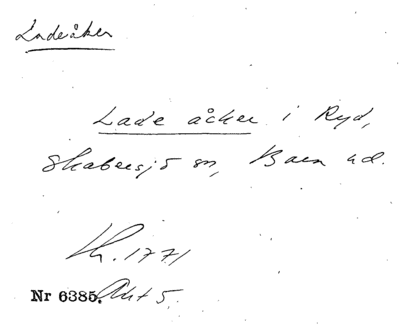 Ladeåker
Lade åcker i Ryd,
Skabersjö sn, Bara hd.
Kh. 1771
Nr 6385. Akt 5.